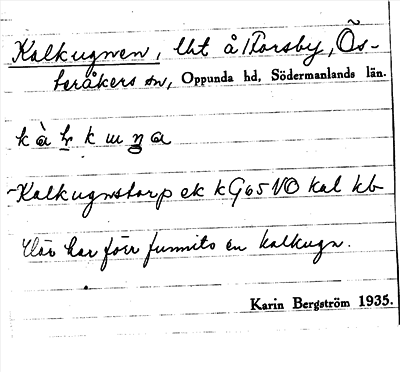 Kalkugnen, lht å Forsby, Ös-
teråkers sn, Oppunda hd, Södermanlands län.
Kalkugnstorp ek kG65NO kal kb
Här har förr funnits en kalkugn.
Karin Bergström 1935.